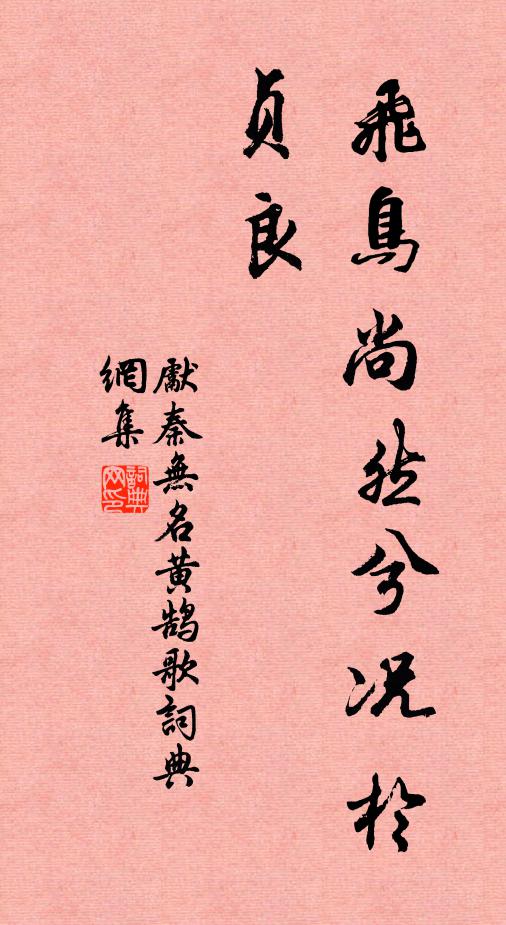 飛鳥尚然兮况於
貞良
獻秦無名黃鵠歌詞典
網集
詞典網印